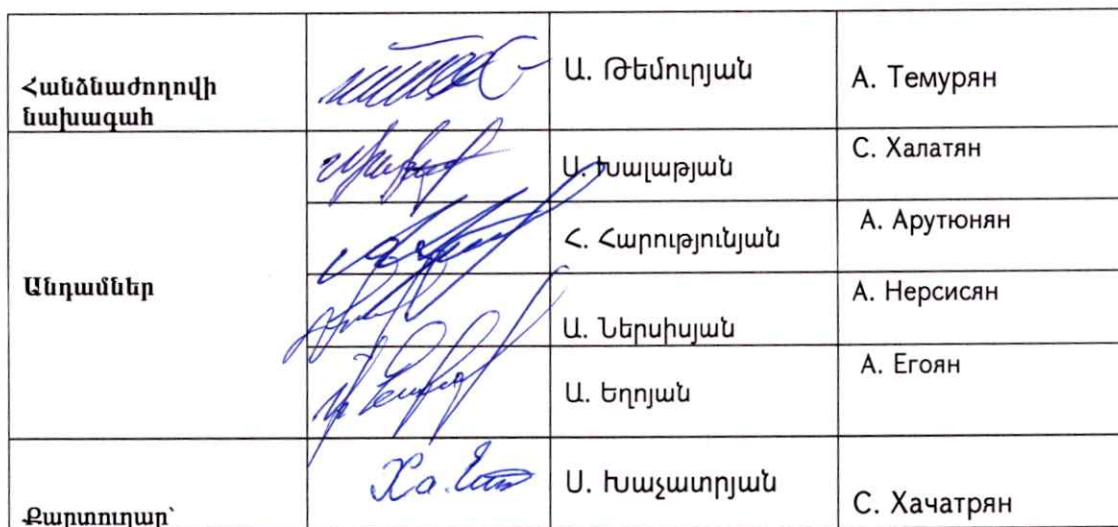 Հանձնաժողովի
նախագահ
Ա. Թեմուրյան
А. Темурян
Անդամներ
Ս. Խալաթյան
С. Халатян
Հ. Հարությունյան
А. Арутюнян
Ա. Ներսիսյան
А. Нерсисян
Ա. Եղոյան
А. Егоян
Քարտուղար՝
Ս. Խաչատրյան
С. Хачатрян